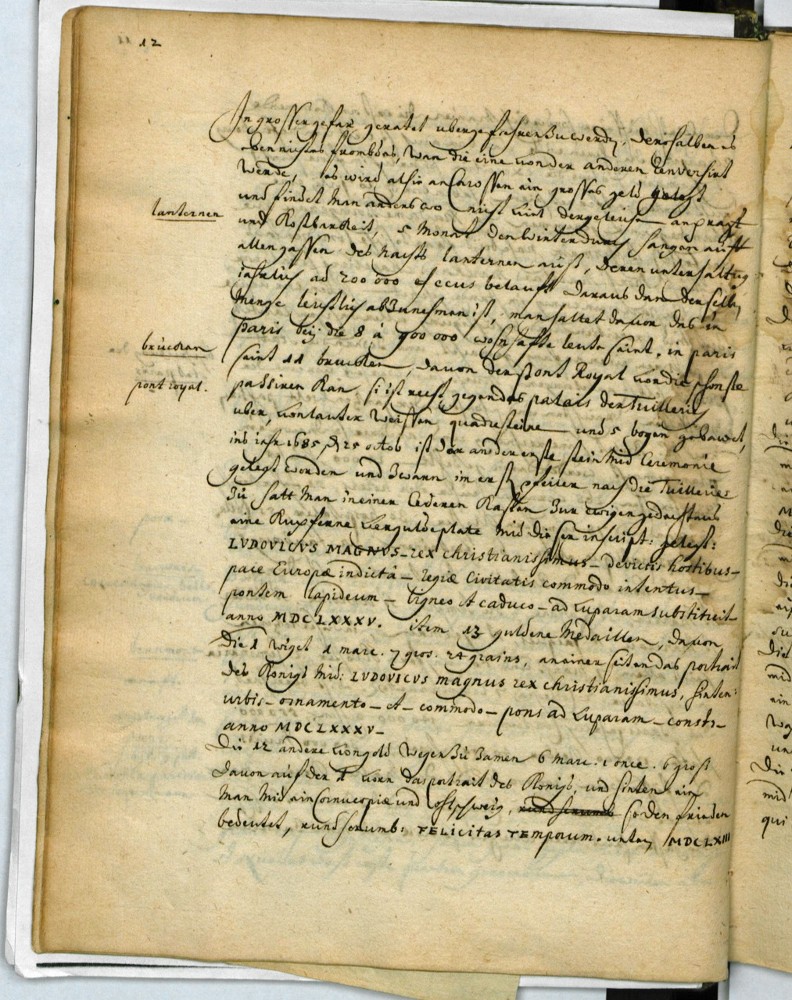 12
In grosser gefar geratet ubergefahren zu werden, derohalben es
eben nichts frombdes, wan die eine von der anderen
werde, es wird alhir an Carossen ein grosses geld gelegt
und findet man anderswo nicht dergleichen an pracht
lanternen
und Kostbarkeit, 5 Monat den winter durch hangen auff
allen gassen des nachts lanternen auss, deren unterhaltung
jahrlich ad 200 000 escus belauft daraus dan derselben
menge leichtlich abzunehmen ist, man haltet davon das in
paris bey die 8 à 900 000 wohnhafte leute seint. in paris
brucken
seint 11 brucken, davon der pont Royal vor die schonste
pont royal.
passiren kan, si ist recht gegen das palais der Tuilleries
uber, von lauter weissen quadersteine und 5 bogen gebauet,
ins jahr 1685 den 25 octob ist der andere erste stein mid Ceremonie
gelegt worden und zwarn im erst pfeiler nach die Tuilleries
zu hatt man in einen Cederen Kasten zur ewigen gedachtnus
eine Kupferne vergulde plate mid diser inscript: gelegt:
LVDOVICVS MAGNVS - rex christianissimus - devictis hostibus -
pace Europæ indictâ - regiæ Civitatis commodo intentus -
pontem lapideum - ligneo et caduco - ad luparam substituit -
anno MDCLXXXV. item 13 guldene Medaillen, davon
die 1 wiget 1 marc. 7 gros. 24 grains, an einer seiten das portrait
des Konigs mid: LVDOVICVS magnus rex christianissimus, hinten:
urbis - ornamento - et - commodo - pons ad Luparam - consts -
anno MDCLXXXV -
Die 12 andere von gold wegen zu zamen 6 marc. 1 once. 6 gros
davon auf der 1 vorn das portrait des Konigs, und hinten ein
Man mid ein Cornucopiæ und ohlzweig, so den frieden
bedeutet, rund herumb: FELICITAS TEMPORUM. unten MDCLXIII